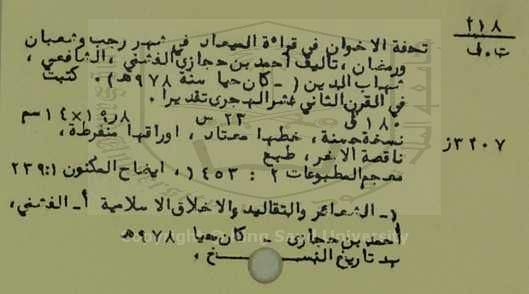 ٢١٨
ت . ف
تحفة الاخوان في قراءة الميعاد في شهر رجب وشعبان
ورمضان ، تأليف أحمد بن حجازي الفشني ، الشافعي ،
شهاب الدين ( - كان حيا سنة ٩٧٨ هـ ) . كتبت
في القرن الثاني عشر الهجري تقديرا .
١٨٥ ق ٢٣ س ١٤×١٩٫٨ سم
نسخة حسنة ، خطها معتاد ، اوراقها منفرطة ،
ناقصة الاخر ، طبع
٣٢٠٧ ز
معجم المطبوعات ٢ : ١٤٥٣ ، ايضاح المكنون ١:٢٣٩
١- الشعائر والتقاليد والاخلاق الاسلامية أ - الفشني ،
أحمد بن حجازى - كان حيا ٩٧٨ هـ
ب - تاريخ النسخ .
Copyright © King Saud University